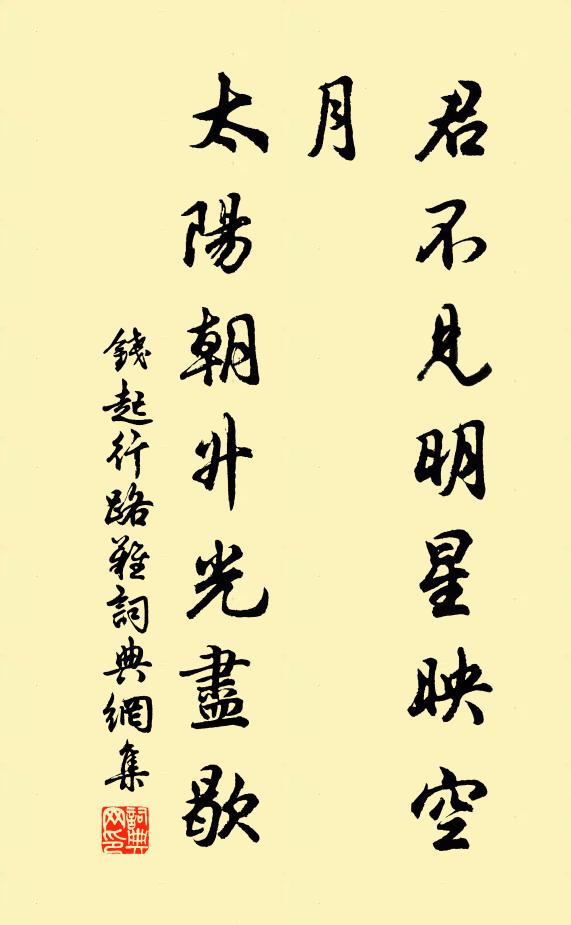 君不見明星映空
月
太陽朝升光盡歇
錢起行路難詞典網集
詞典
网印